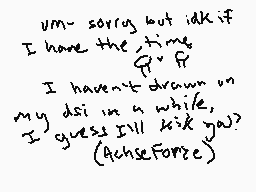 um- sorry but idk if
I have the time
I haven't drawn on
my dsi in a while,
I guess I'll kik ya?
(AchseForce)